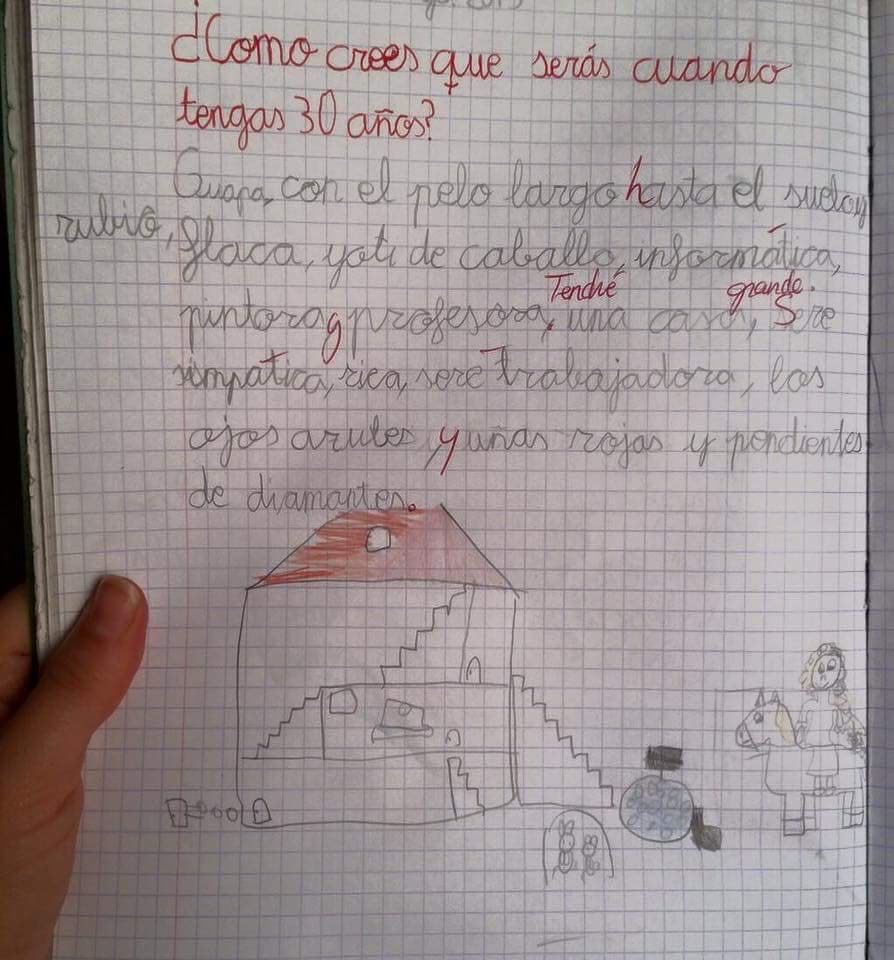 ¿Como crees que serás cuando
tengas 30 años?
Guapa, con el pelo largo hasta el suelo y
rubio, flaca, yoti de caballo, informática,
Tendré grande.
pintora y profesora, una casa, Sere
simpática, rica, seré trabajadora, los
ojos azules y uñas rojas y pendientes
de diamantes.